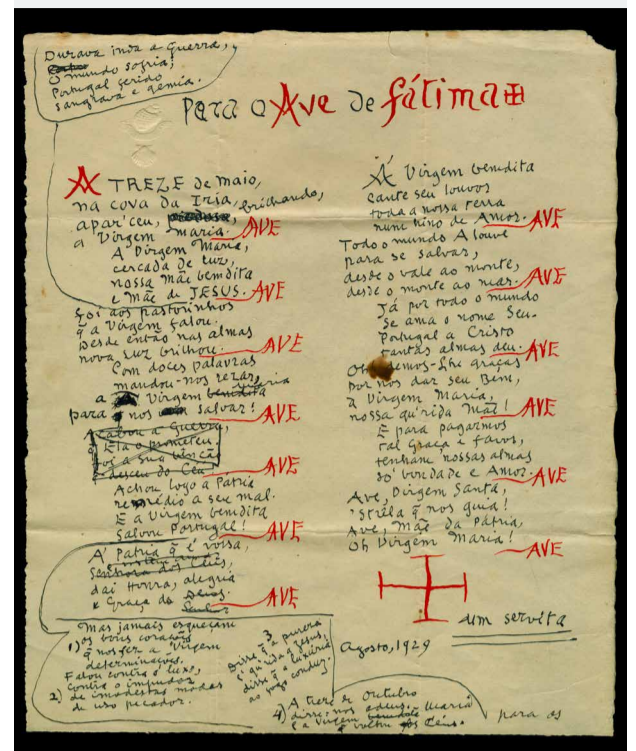 Durava inda a Guerra,
O mundo sofria;
Portugal ferido
sangrava e gemia.
Para o Ave de fátima
A TREZE de maio,
na cova da Iria,
apar'ceu, brilhando,
a Virgem maria. AVE
A Virgem Maria,
cercada de luz,
nossa Mãe bemdita
e Mãe de JESUS. AVE
Foi aos pastorinhos
q̃ a Virgem falou.
Desde então nas almas
nova luz brilhou. AVE
Com doces palavras
mandou-nos rezar,
a Virgem bemdita Maria
para nos salvar! AVE
Acabou a Guerra,
Ela o prometeu
foi a Sua bênção
desceu do Céu. AVE
Achou logo a Patria
remédio a seu mal.
E a Virgem bemdita
Salvou Portugal! AVE
A' Patria q̃ é vossa,
Senhora dos Céus,
dai Honra, alegria
e Graça de Deus. AVE
Mas jamais esqueçam
1) os bons corações
q̃ nos fez a Virgem
determinações.
Falou contra o luxo,
contra o impudor
2) de imodestas modas
de uso pecador.
3
Disse q̃ a pureza
a Jesus,
disse q̃ a luxúria
ao fogo conduz.
4) A treze de Outubro
disse-nos adeus. Maria
e a Virgem
voltou Céus.
para os
A' Virgem bemdita
cante seu louvor
toda a nossa terra
num hino de Amor. AVE
Todo o mundo A louve
para se salvar,
desde o vale ao monte,
desde o monte ao mar. AVE
Já por todo o mundo
se ama o nome Seu.
Portugal a Cristo
tantas almas deu. AVE
Oh demos-Lhe graças
por nos dar seu Bem,
à Virgem Maria,
nossa qu'rida Mãe! AVE
E para pagarmos
tal Graça e favor,
tenham nossas almas
só bondade e Amor. AVE
Ave, Virgem Santa,
'Strêla q̃ nos guia!
Ave, Mãe da Pátria,
Oh Virgem Maria! AVE
um servita
Agosto, 1929